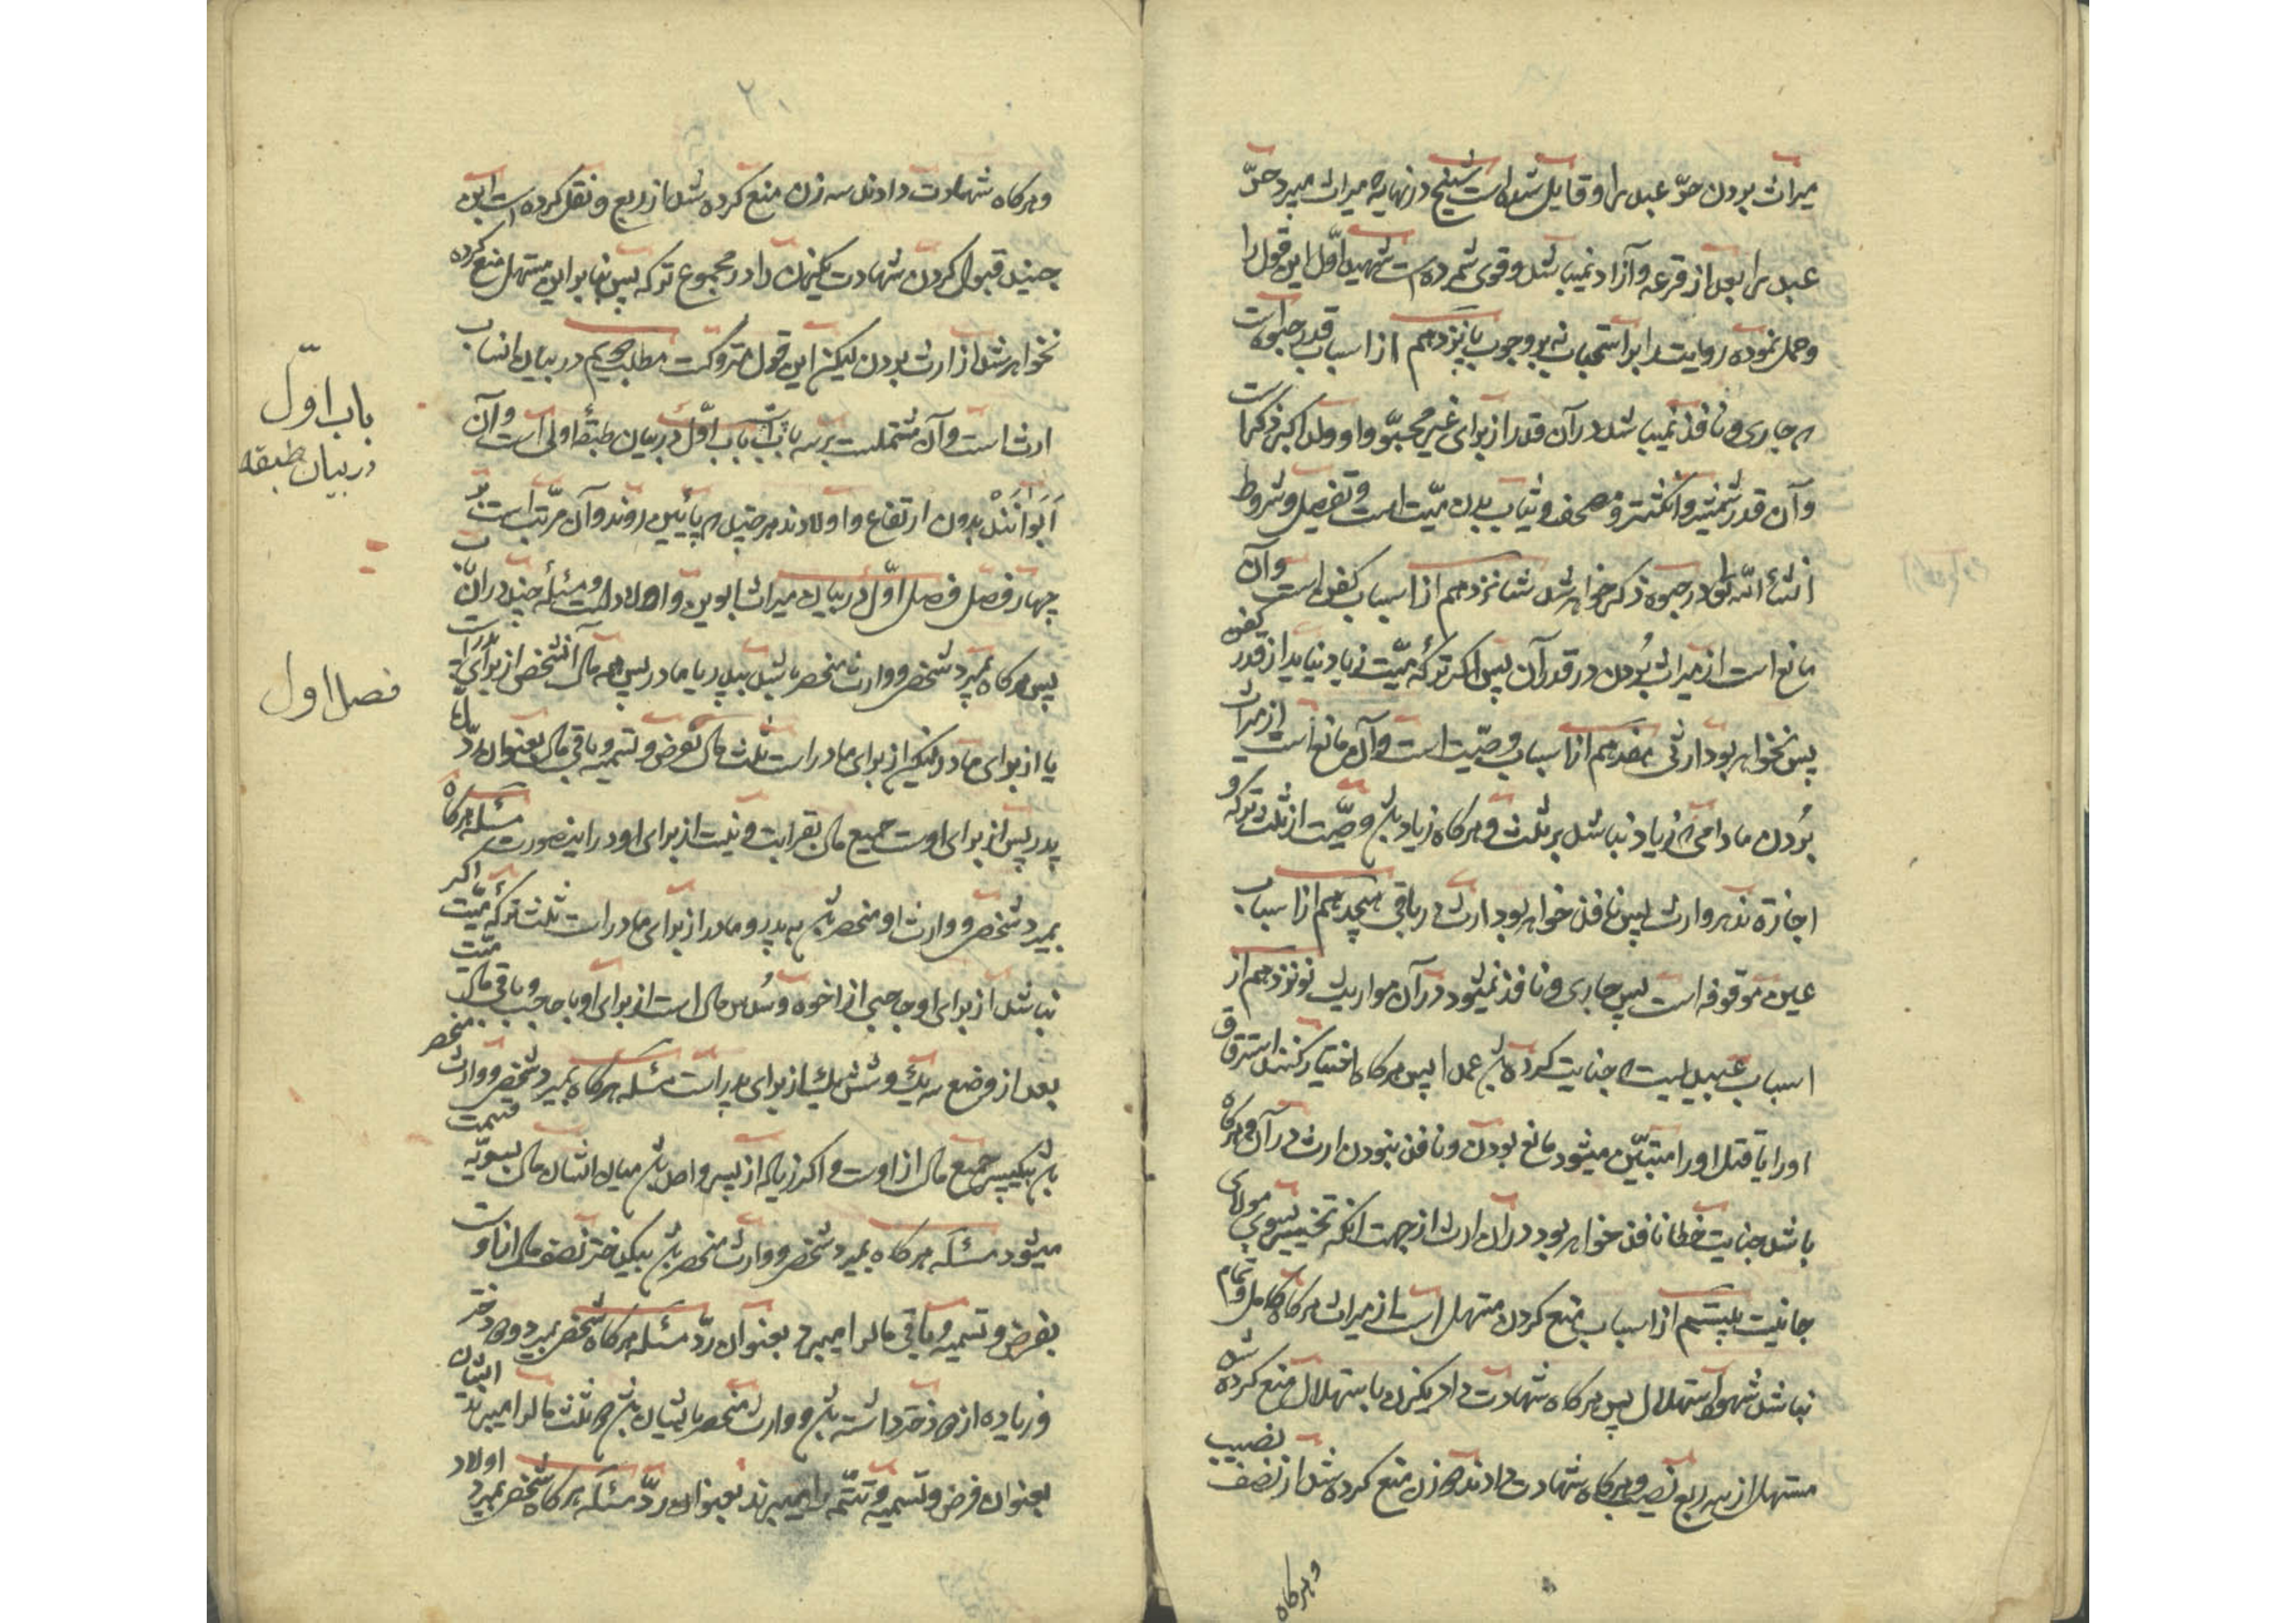 میراث بردن حرّ عبد را و قایل شده است شیخ در نهایه میراث میبرد حرّ
عبد را بعد از قرعه و آزاد نمیباشد و قوی شمرده است شهید اوّل این قول را
و حمل نموده روایت را بر استحباب نه بر وجوب پانزدهم از اسباب قدر حبوه است
که جاری و نافذ نمیباشد در آن قدر از برای غیر محبوّ و او ولد اکبر ذکر است
و آن قدر شمشیر و انکشتر و مصحف و ثیاب بدن میّت است و تفصیل و شروط
انشاء اللّه در حبوه ذکر خواهد شد شانزدهم از اسباب کفن است و آن
مانع است از میراث بُردن در قدر آن پس اکر ترکهٔ میّت زیاد نیاید از قدر کفن
پس نخواهد بود ارثی هفدهم از اسباب وصیّت است و آن مانع است از میراث
بُردن مادامی که زیاد نباشد بر ثلث و هرکاه زیاد باشد وصیّت از ثلث ترکه و
اجازه ندهد وارث پس نافذ خواهد بود ارث در باقی هیجدهم از اسباب
عین موقوفه است پس جاری و نافذ نمیشود در آن مواریث نونزدهم از
اسباب عبدیست که جنایت کرده باشد عمدا پس هرکاه اختیار کنند استرقاق
او را یا قتل او را متبیّن میشود مانع بودن و نافذ نبودن ارث در آن و هرکاه
باشد جنایت خطا نافذ خواهد بود در آن ارث از جهت انکه تخییر بسوی مولای
جانیت بیستم از اسباب منع کردن مستهل است از میراث هرکاه کامل و تمام
نباشد شهود استهلال پس هرکاه شهادت داد یکزن با ستهلال منع کرده شد
مستهل از سه ربع نصیب و هرکاه شهادت دادند دو زن منع کرده شد از نصف نصیب
و هرکاه
۲۰
و هرکاه شهادت دادند سه زن منع کرده شد از ربع و نقل کرده است ابن
جنید قبول کردن شهادت یکزن را در مجموع ترکه پس بنابر این مستهل منع کرده
نخواهد شد از ارث بردن لیکن این قول متروکست مطلب دویم در بیان انساب
ارث است و آن مشتملست بر سه باب باب اوّل در بیان طبقهٔ اولی است و آن
اَبَوانند بدون ارتفاع و اولادند هر چند که پائین روند و آن مرتّب است بر
چهار فصل فصل اوّل در بیان میراث ابوین و اولاد است و مسئلهٔ چند در آنست
پس هرکاه بمیرد شخص و وارث منحصر باشد بپدر یا مادر پس همه مال آنشخص از برای پدر است
یا از برای مادر لیکن از برای مادر است ثلث مال بفرض و تسمیه و باقی مال بعنوان ردّ اما
پدر پس از برای اوست جمیع مال بقرابت و نیست از برای او در اینصورت مسئله هرکاه
بمیرد شخص و وارث او منحصر باشد به پدر و مادر از برای مادر است ثلث ترکهٔ میّت اکر
نباشد از برای او حاجبی از اخوه و سُدس مال است از برای او با حاجب و باقی مال میّت
بعد از وضع سه یک و شش یک از برای پدر است مسئله هرکاه بمیرد شخص و وارث منحصر
باشد بیکپسر جمیع مال از اوست و اکر زیاده از پسر واحد باشد میان ایشان مال بسویّه قسمت
میشود مسئله هرکاه بمیرد شخص و وارث منحصر باشد بیکدختر نصف مال از اوست
بفرض و تسمیه و باقی مال را میبرد بعنوان ردّ مسئله هرکاه شخص بمیرد و دو دختر
و زیاده از دو دختر داشته باشد و وارث منحصر بایشان باشد دو ثلث مال را میبرند ایشان
بعنوان فرض و تسمیه و تتمّه را میبرند بعنوان ردّ مسئله هرکاه شخص بمیرد اولاد
باب اوّل
در بیان طبقه
فصل اول